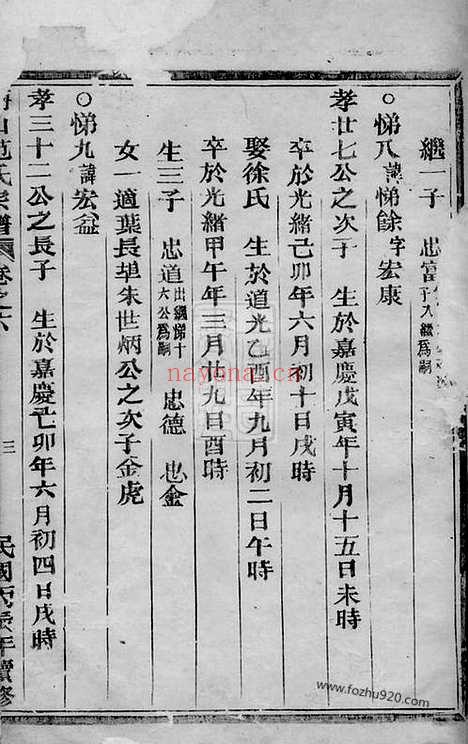 繼一子 忠富 子入繼爲嗣
○悌八 諱悌餘 字宏康
孝廿七公之次子 生於嘉慶戊寅年十月十五日未時
卒於光緒己卯年六月初十日戌時
娶徐氏 生於道光乙酉年九月初二日午時
卒於光緒甲午年三月廿九日酉時
生三子 忠道 出繼悌十六公爲嗣 忠德 忠金
女一適葉長埠朱世炳公之次子金虎
○悌九 諱宏益
孝三十二公之長子 生於嘉慶己卯年六月初四日戌時
山范氏宗譜 卷之六 三 民國丙辰年續修
nayona.cn
www.fozhu920.com